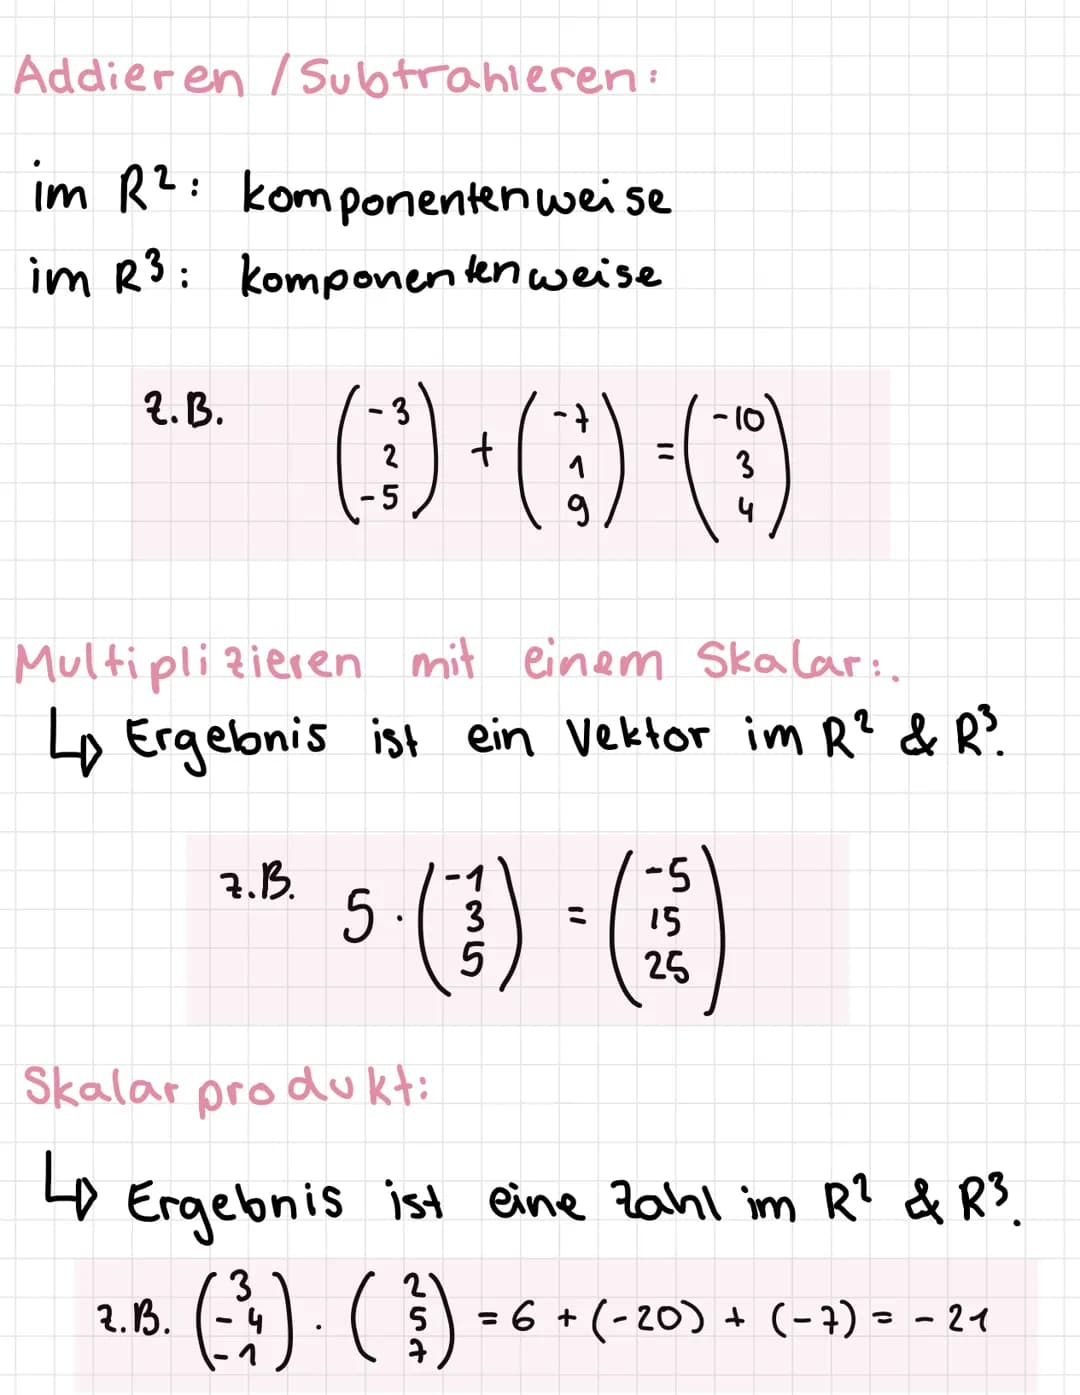 Addieren / Subtrahieren:
im R²: komponentenweise
im R³: komponentenweise
z.B. (-3 2 -5) + (-7 1 9) = (-10 3 4)
Multiplizieren mit einem Skalar:.
↳ Ergebnis ist ein Vektor im R² & R³.
z.B. 5 · (-1 3 5) = (-5 15 25)
Skalarprodukt:
↳ Ergebnis ist eine Zahl im R² & R³.
z.B. (3 -4 -1) · (2 5 7) = 6 + (-20) + (-7) = -21